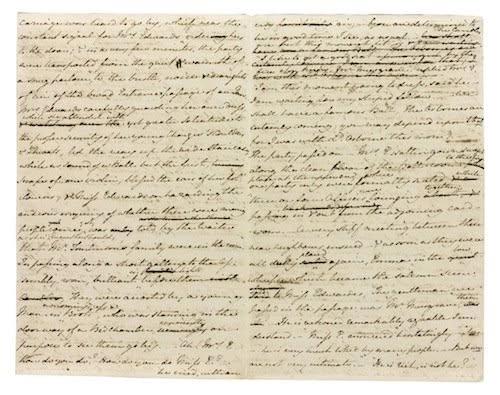 carriage was heard to go by, which was the
constant signal for Mrs Edwards's ordering hers
to the door; & in a very few minutes, the party
were transported from the quiet warmth of
a snug parlour, to the bustle, noise & draughts
of air of the broad Entrance-passage of an Inn.
Mrs Edwards carefully guarding her own dress,
while she attended with yet greater solicitude to
the proper security of her young Charges' Shoulders
& Throats, led the way up the wide staircase,
while no sound of a Ball but the first
scrape of one violin, blessed the ears of her
followers, & Miss Edwards on hazarding the
anxious enquiry of whether there were many
people come yet, was told by the Waiter
that Mr Tomlinson's family were in the room.
In passing along a short gallery to the As-
sembly-room, brilliant in lights before them
they were accosted by a young
Man in a morning dress & Boots, who was standing in the
doorway of a Bedchamber, apparently on
purpose to see them go by. Ah! Mrs E
how do you do? How do you do Miss E.?
he cried, with an
easy air; You are determined to
be in good time I see, as usual The Candles
are but this moment lit
I like to get a good seat by the
fire you know, Mr Musgrave. replied Mrs E.
I am this moment going to dress, said he
I am waiting for my stupid fellow. We
shall have a famous Ball. The Osbornes are
certainly coming; you may depend upon that
for I was with Ld Osborne this morng
The party passed on Mrs E's satin gown swept
along the clean floor of the Ball-room, to the fire
one party only were formally seated, while
three or four Officers were lounging together
passing in & out from the adjoining card-
room. A very stiff meeting between these
near neighbours ensued & as soon as they were
all duly placed again, Emma in the low
whisper which became the solemn scene
said to Miss Edwardes, The gentleman we
passed in the passage, was Mr Musgrave, then?
He is reckoned remarkably agreeable I un-
derstand. Miss E. answered hesitatingly Yes
he is very much liked by many people. But we
are not very intimate. He is rich, is not he?